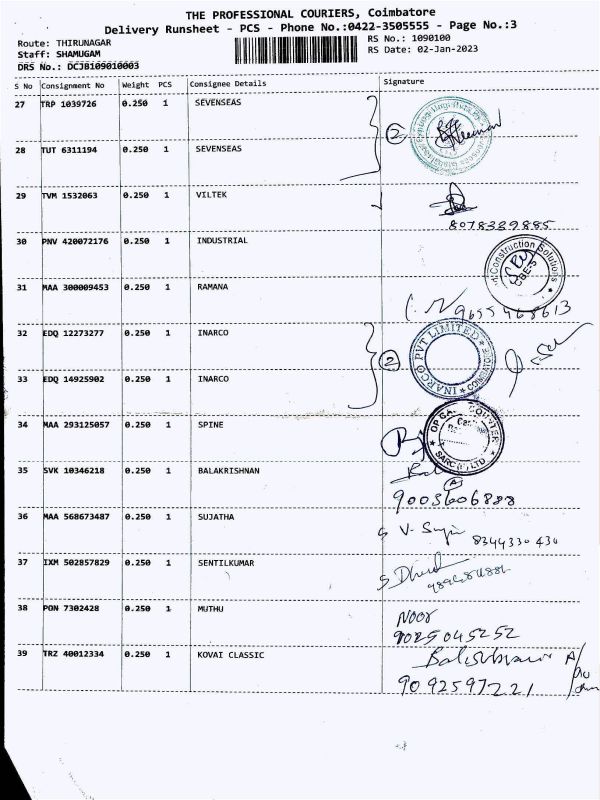 THE PROFESSIONAL COURIERS, Coimbatore
Delivery Runsheet - PCS - Phone No.:0422-3505555 - Page No.:3
Route: THIRUNAGAR RS No.: 1090100
Staff: SHAMUGAM RS Date: 02-Jan-2023
DRS No.: DCJB109010003
S No Consignment No Weight PCS Consignee Details Signature
27 TRP 1039726 0.250 1 SEVENSEAS
2
28 TUT 6311194 0.250 1 SEVENSEAS
29 TVM 1532063 0.250 1 VILTEK
8078339885
30 PNV 420072176 0.250 1 INDUSTRIAL
Construction Solutions
CBE-5
31 MAA 300009453 0.250 1 RAMANA
9655468613
32 EDQ 12273277 0.250 1 INARCO
INARCO PVT LIMITED
2
33 EDQ 14925902 0.250 1 INARCO
34 MAA 293125057 0.250 1 SPINE
COURIER
SARC (I) LTD
35 SVK 10346218 0.250 1 BALAKRISHNAN
9003606888
36 MAA 568673487 0.250 1 SUJATHA
8344330430
37 IXM 502857829 0.250 1 SENTILKUMAR
38 PON 7302428 0.250 1 MUTHU
Noor
9025045252
39 TRZ 40012334 0.250 1 KOVAI CLASSIC
9092597221